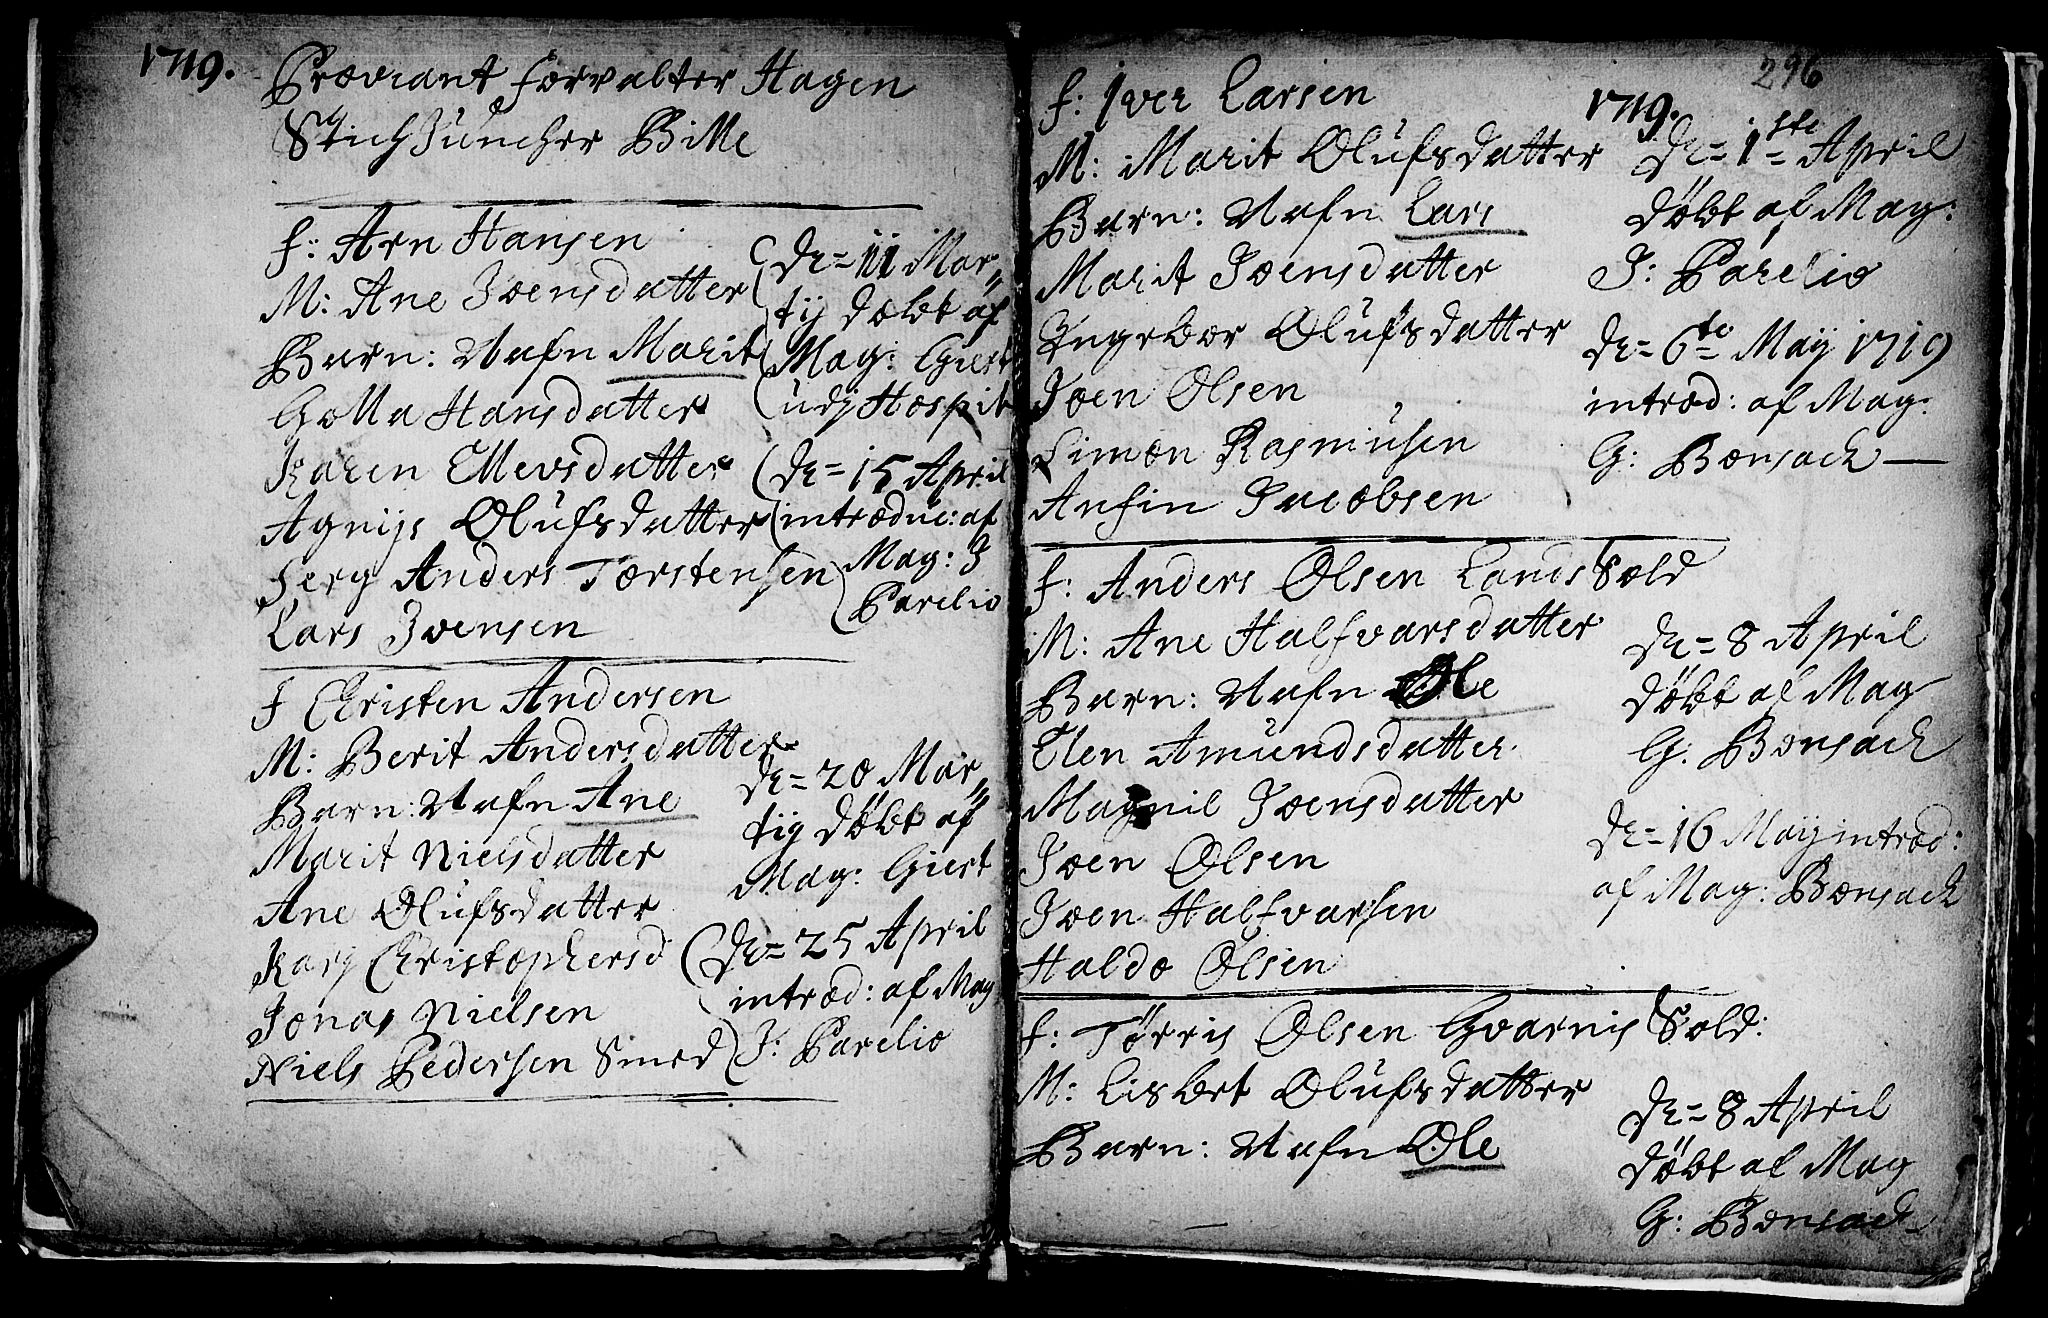 1719.
Proviant forvalter Hagen
StückJüncher Bille
f: Arn Hansen
M: Ane Joensdatter
Barn: Nafn Marit
Golla Hansdatter
Karen Ellevsdatter
Agnijs Olüfsdatter
Serg Anders Torstensen
Lars Joensen
de= 11 Mar„
tij døbt af
Mag: Giert
udj Hospit
de= 15 April
introduc: af
Mag: J
Parelio
F Christen Andersen
M: Berit Andersdatter
Barn: Nafn Ane
Marit Nielsdatter
Ane Olüfsdatter
Karj Christophersd
Jonas Nielsen
Niels Pedersen Smed
de= 20 Mar„
tij døbt af
Mag: Giert
de= 25 April
introd: af Mag
J: Parelio
296
1719.
f: Iver Larsen
M: Marit Olüfsdatter
Barn: Nafn Lars
Marit Joensdatter
Ingebor Olüfsdatter
Joen Olsen
Simon Rasmusen
Anfin Jacobsen
de= 1ste April
døbt af Mag:
J: Parelio
de= 6te Maij 1719
introd: af Mag:
G: Bonsack
f: Anders Olsen Lands Sold
M: Ane Halfvarsdatter
Barn: Nafn Ole
Elen Amündsdatter
Magnil Joensdatter
Joen Olsen
Joen Halfvarsen
Haldo Olsen
de= 8 April
døbt af Mag
G. Bonsack
de= 16 Maij introd:
af Mag: Bonsack
f: Tørris Olsen Gvarnis Sold:
M: Lisbet Olüfsdatter
Barn: Nafn Ole
de= 8 April
døbt af Mag
G: Bonsack